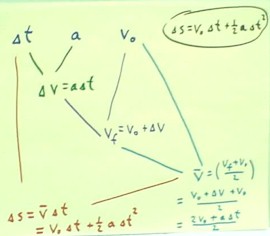 Δt a V₀ Δs = V₀ Δt + ½ a Δt²
ΔV = aΔt
V_f = V₀ + ΔV
V̄ = (V_f + V₀ / 2)
= V₀ + ΔV + V₀ / 2
= 2V₀ + aΔt / 2
Δs = V̄ Δt
= V₀ Δt + ½ a Δt²